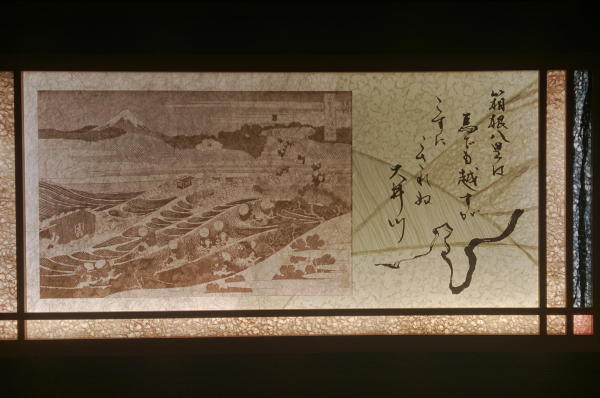 箱根八里は
馬でも越すが
こすに
こされぬ
大井川